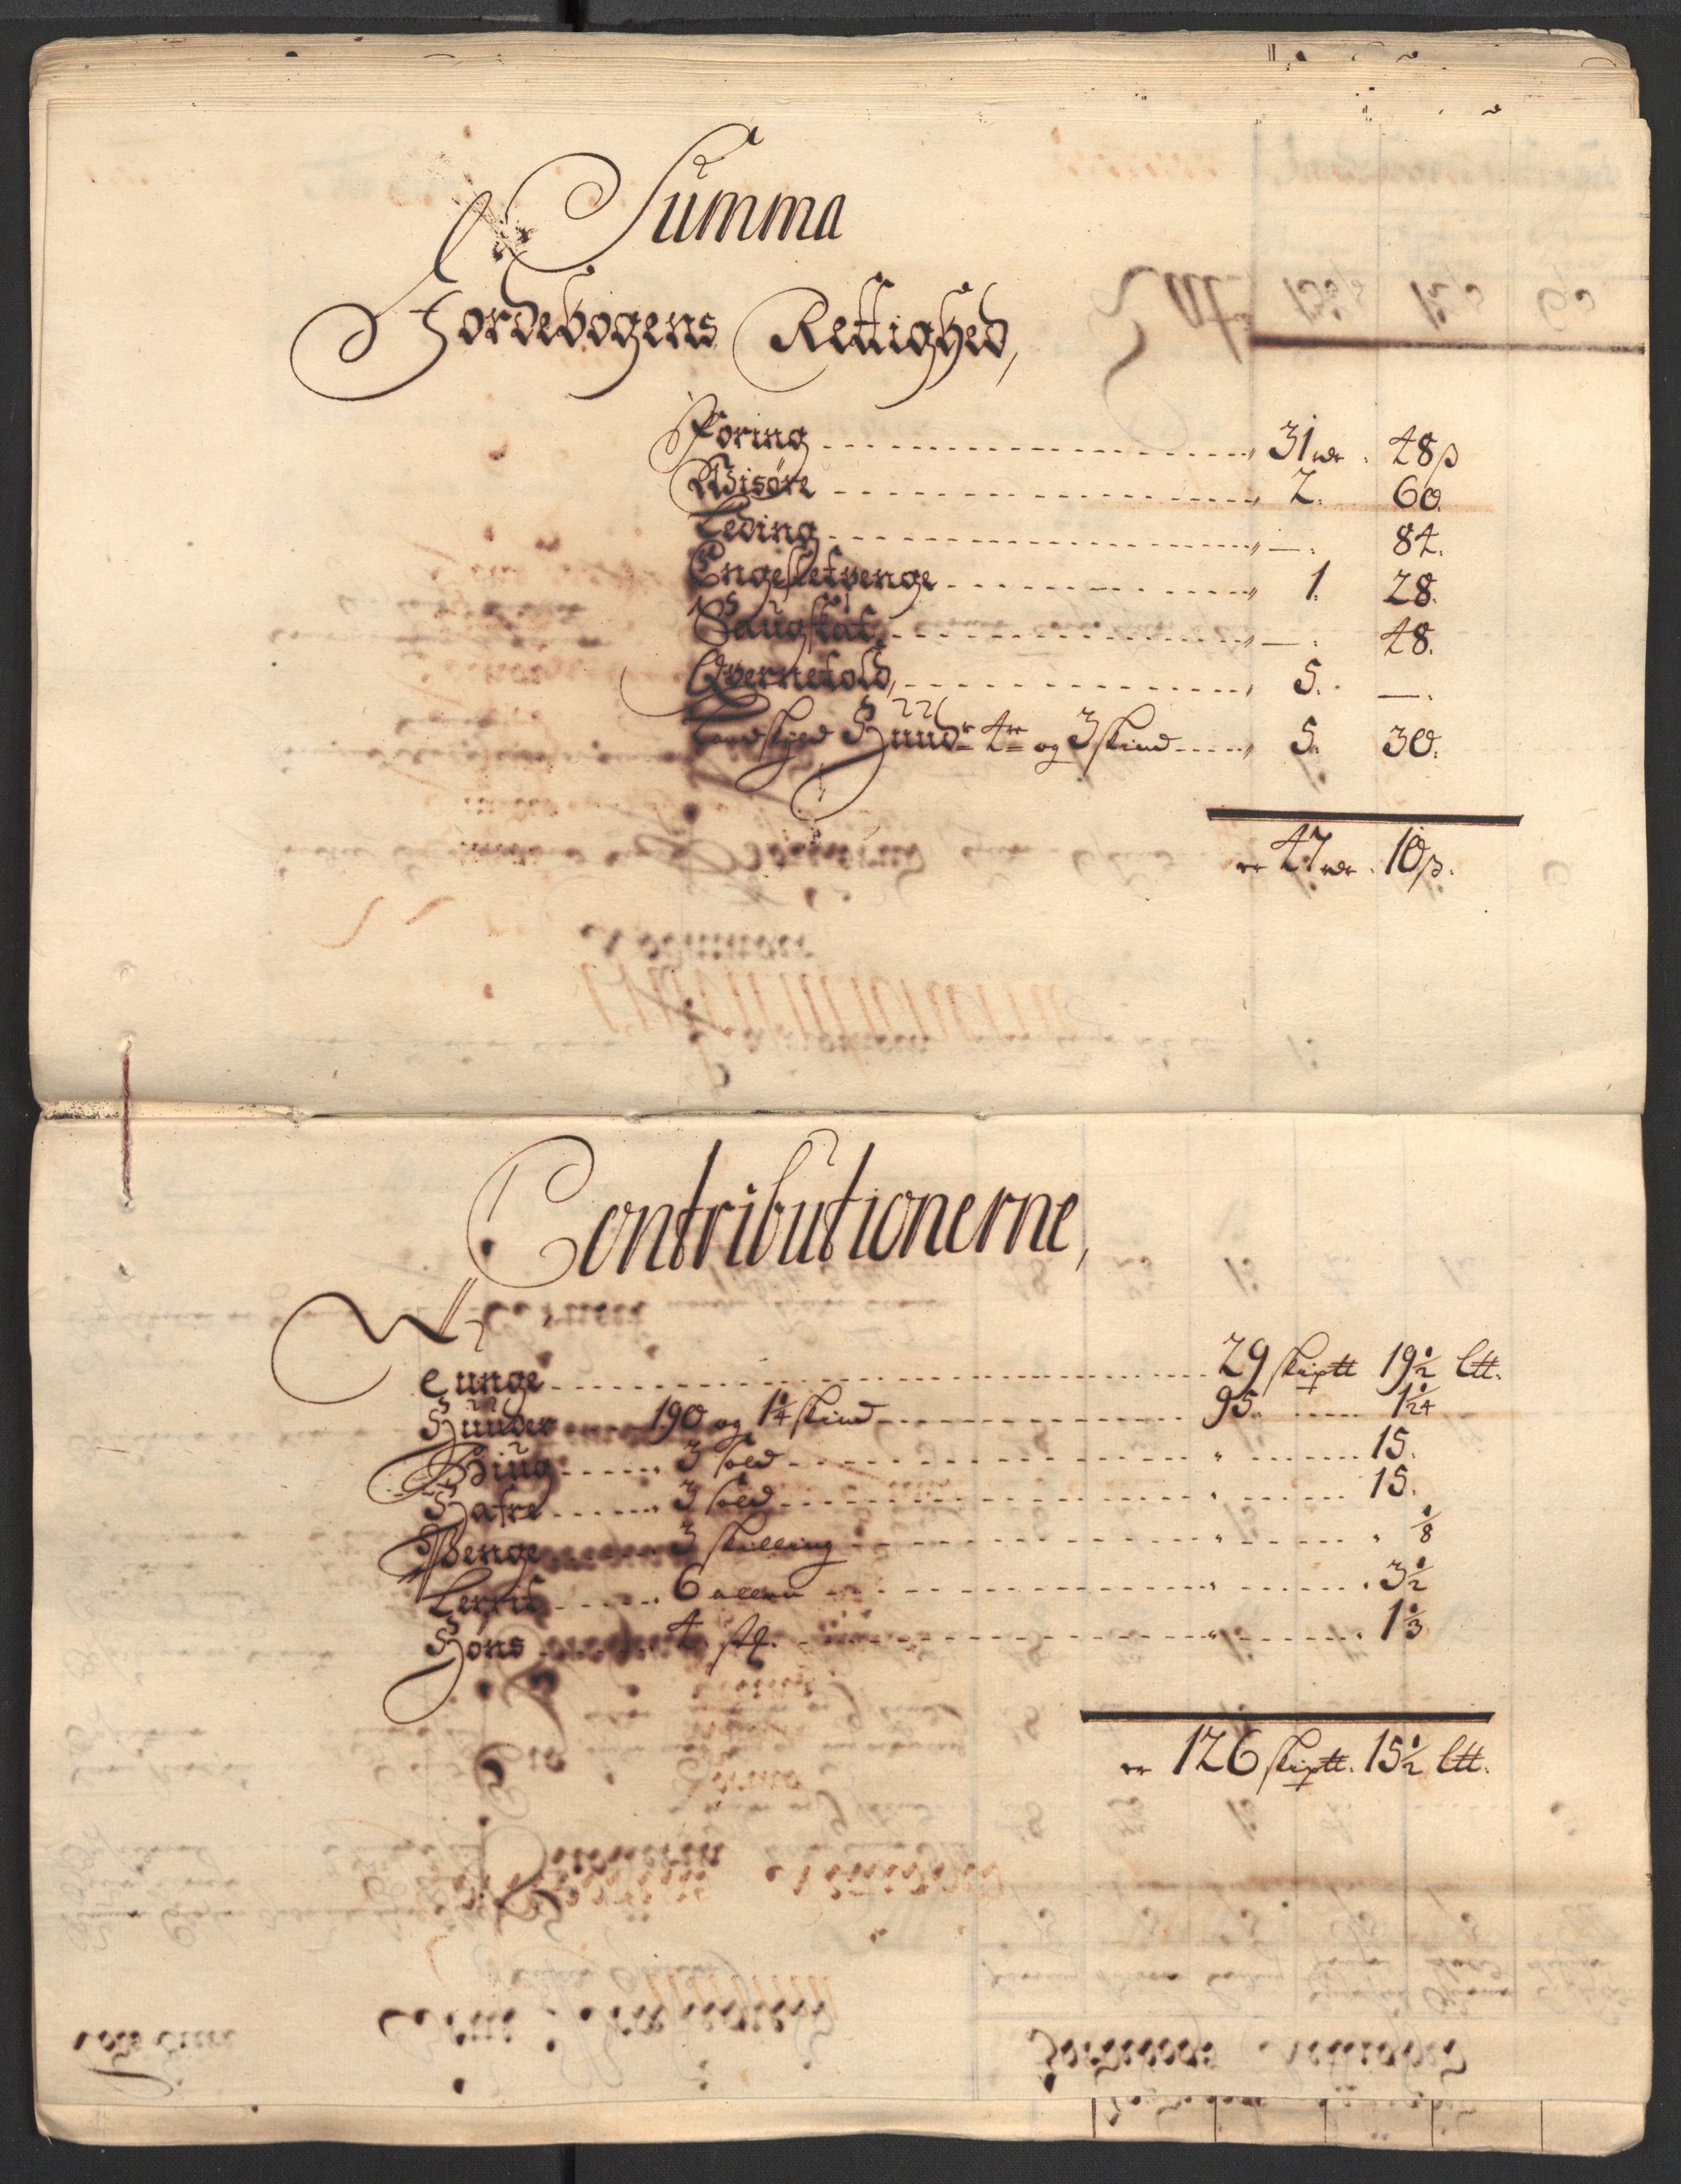 Summa
Jordebogens Rettighed,
Foring 31 rdr. 48 ß
Wisøre 2. 60.
Leding — 84.
Engesletpenge 1. 28.
Saugskat — 48.
Qvernetold, 5. —
Landskyld Huuder 4re og 3 skind 5. 30.
er 47 rdr. 10 ß.
Contributionerne,
Tunge 29 skiptt 19½ Ltt.
Huuder 190 og 1¼ skind 95. 1 1/24
Biug 3 sold " 15.
Hafre 3 sold " 15.
Penge 3 skilling " " 1/8
Lerrit 6 allen " 3½
Høns 4. stk. " 1⅓
er 126 skiptt. 15½ Ltt.